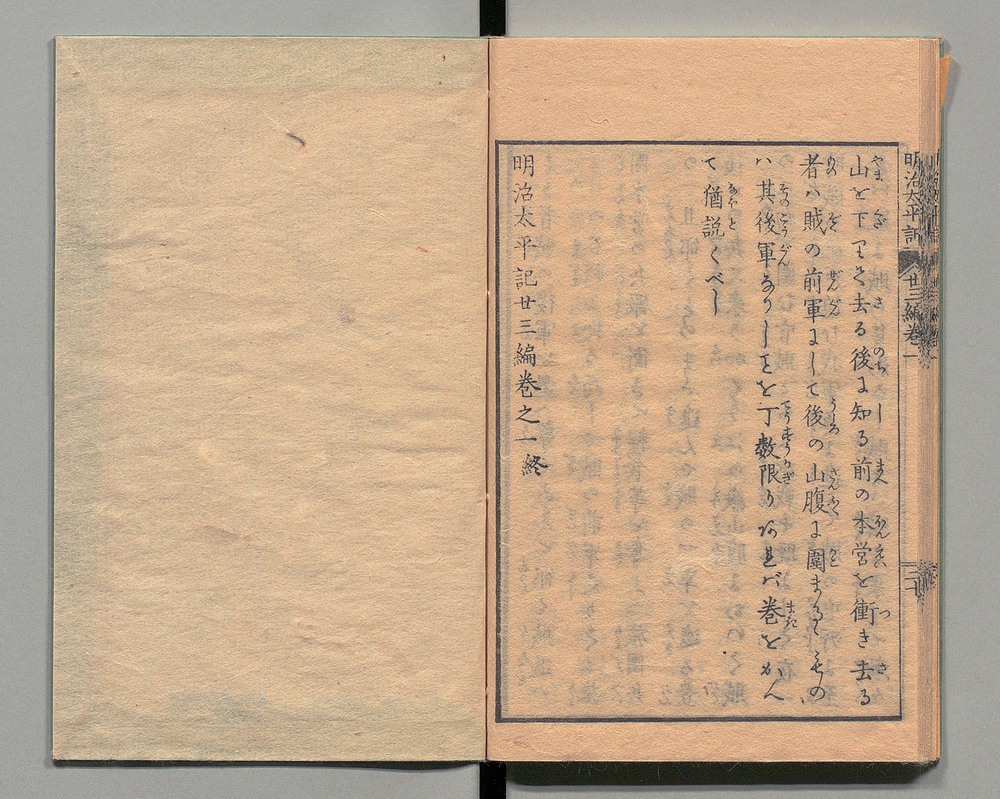 山を下りて去る後に知る前の本営を衝き去る
者ハ賊の前軍にして後の山腹に圍まるゝもの
ハ其後軍なりしことを丁数限りあれバ巻をかへ
て猶説くべし
明治太平記廿三編巻之一終
明治太平記 廿三編巻一
二十